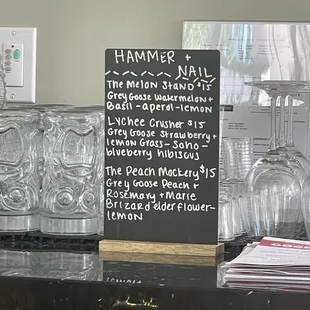 HAMMER +
NAIL
The Melon Stand $15
Grey Goose Watermelon +
Basil - aperol - lemon
Lychee Crusher $15
Grey Goose Strawberry +
lemon Grass - Soho -
blueberry hibiscus
The Peach Mackery $15
Grey Goose Peach +
Rosemary + Marie
Brizard elderflower -
lemon